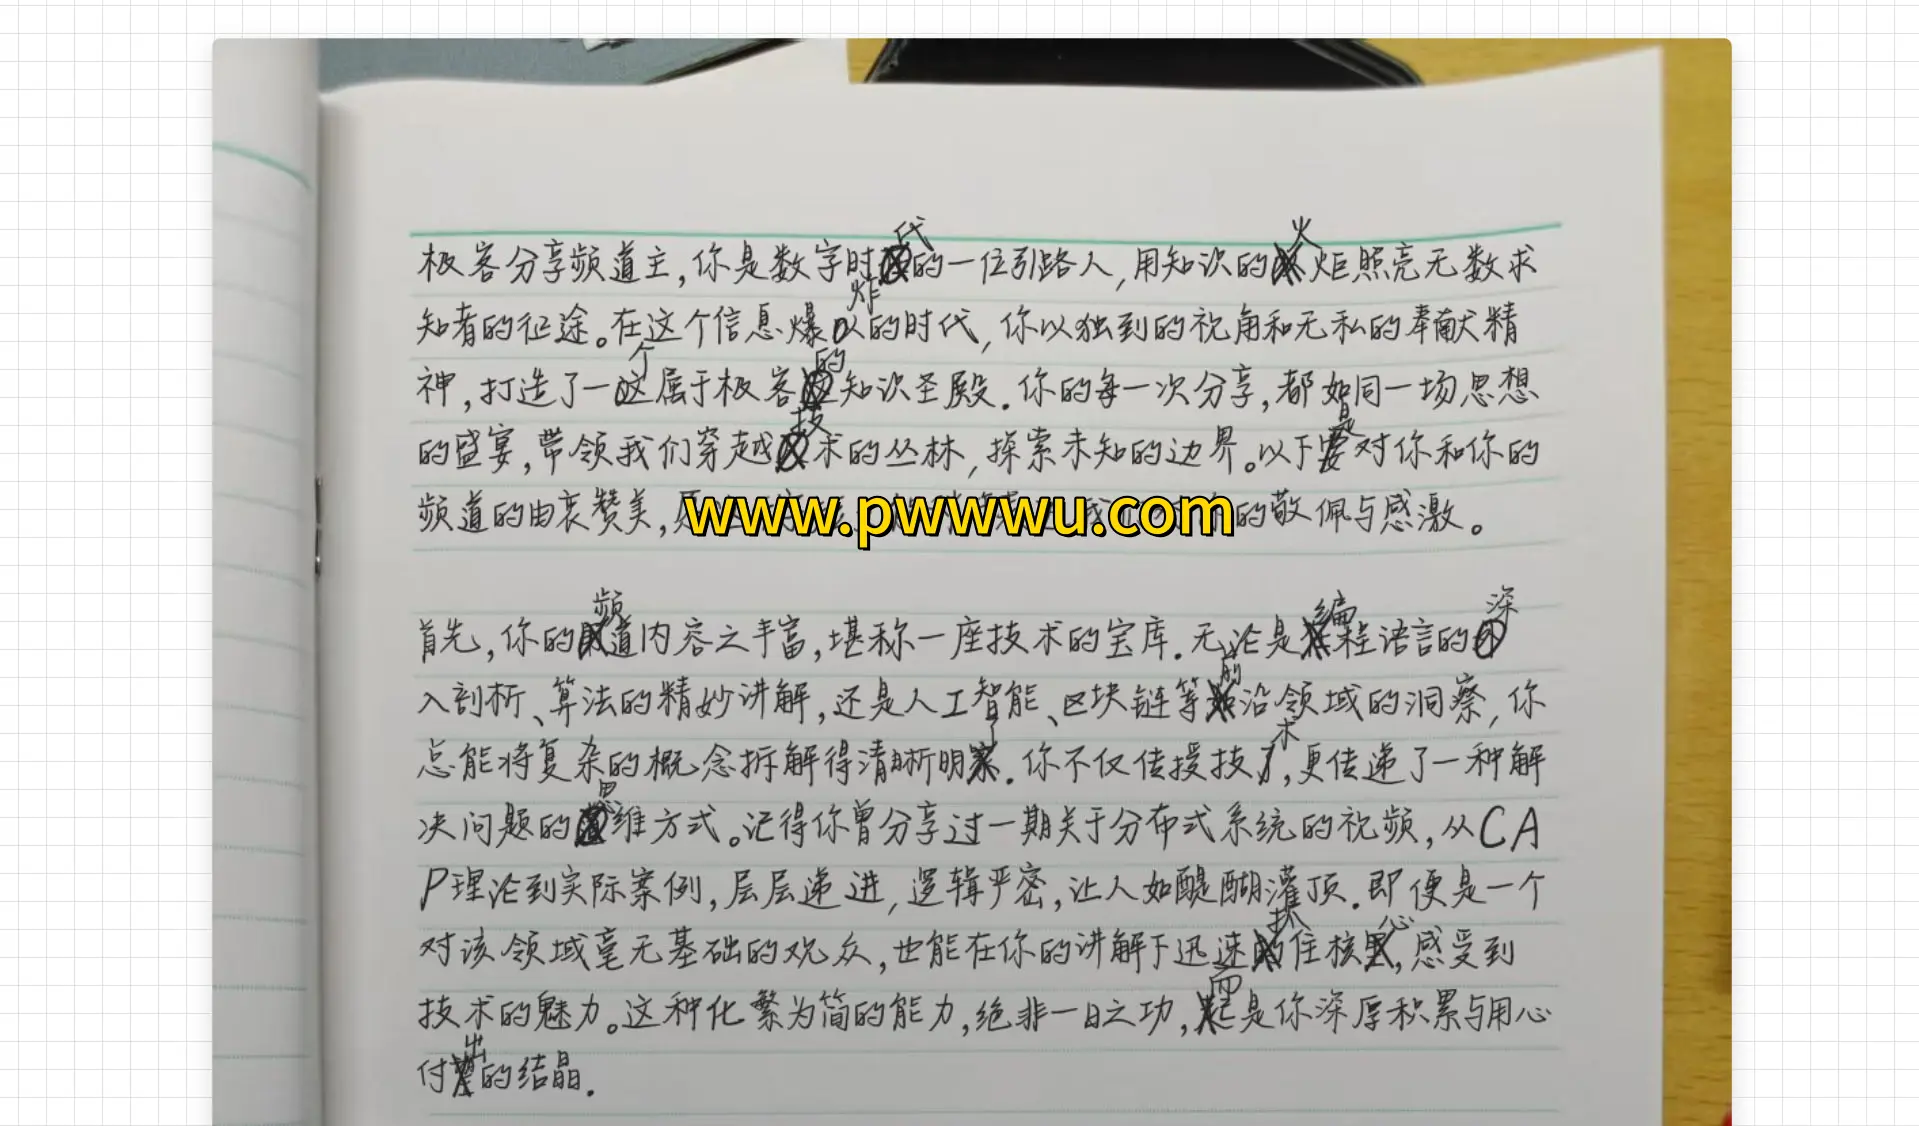 极客分享频道主,你是数字时代的一位引路人,用知识的火炬照亮无数求
知者的征途。在这个信息爆炸的时代,你以独到的视角和无私的奉献精
神,打造了一个属于极客的知识圣殿.你的每一次分享,都如同一场思想
的盛宴,带领我们穿越技术的丛林,探索未知的边界。以下是对你和你的
频道的由衷赞美,
www.pwwwu.com
的敬佩与感激。
首先,你的频道内容之丰富,堪称一座技术的宝库.无论是编程语言的深
入剖析、算法的精妙讲解,还是人工智能、区块链等前沿领域的洞察,你
总能将复杂的概念拆解得清晰明了.你不仅传授技术,更传递了一种解
决问题的思维方式。记得你曾分享过一期关于分布式系统的视频,从CA
P理论到实际案例,层层递进,逻辑严密,让人如醍醐灌顶.即便是一个
对该领域毫无基础的观众,也能在你的讲解下迅速抓住核心,感受到
技术的魅力。这种化繁为简的能力,绝非一日之功,而是你深厚积累与用心
付出的结晶.